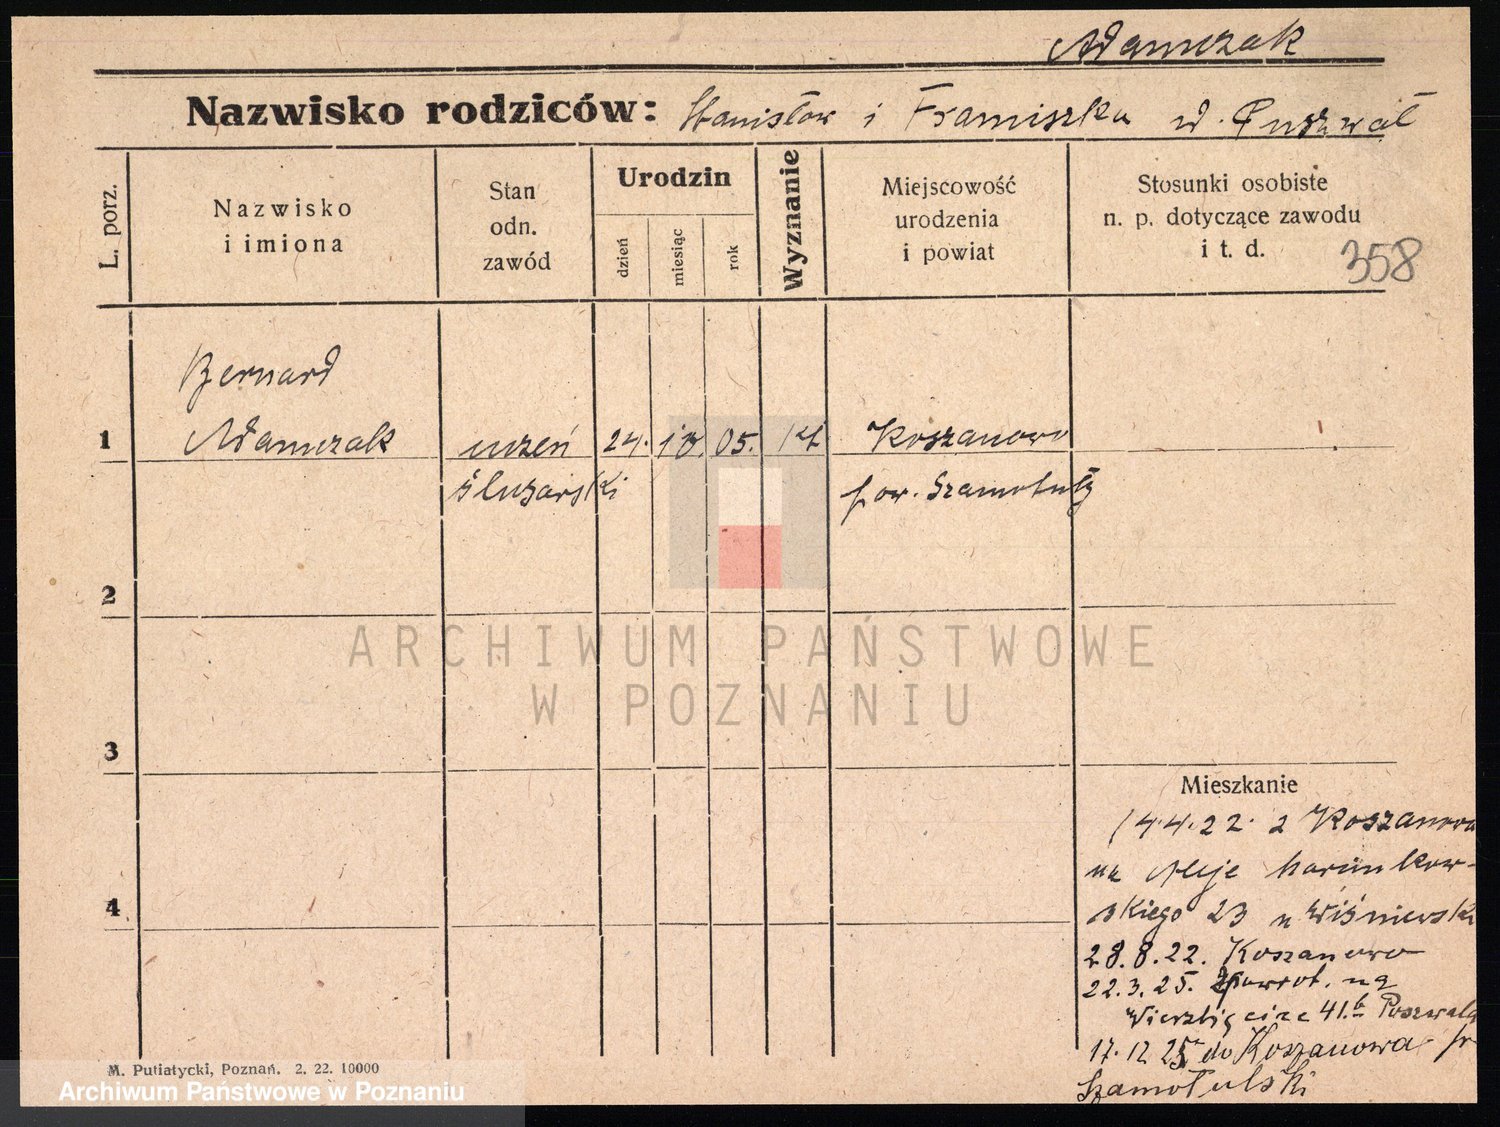 Adamczak
Nazwisko rodziców: Stanisław i Franciszka
L. porz.
Nazwisko
i imiona
Stan
odn.
zawód
Urodzin
dzień
miesiąc
rok
Wyznanie
Miejscowość
urodzenia
i powiat
Stosunki osobiste
n. p. dotyczące zawodu
i t. d.
358
Bernard
1 Adamczak uczeń 24. 05. Koszanowo
ślusarski pow. Szamotuły
2
ARCHIWUM PAŃSTWOWE
W POZNANIU
3
Mieszkanie
14.4.22. z Koszanowa
na Aleje Marcinkow-
4 skiego 23 u Wiśniewski
28.8.22. Koszanowo
22.3.25. Powrot. na
Wierzbięcice 41.
17.12.25 do Koszanowa
Szamotulski
M. Putiatycki, Poznań. 2. 22. 10000
Archiwum Państwowe w Poznaniu